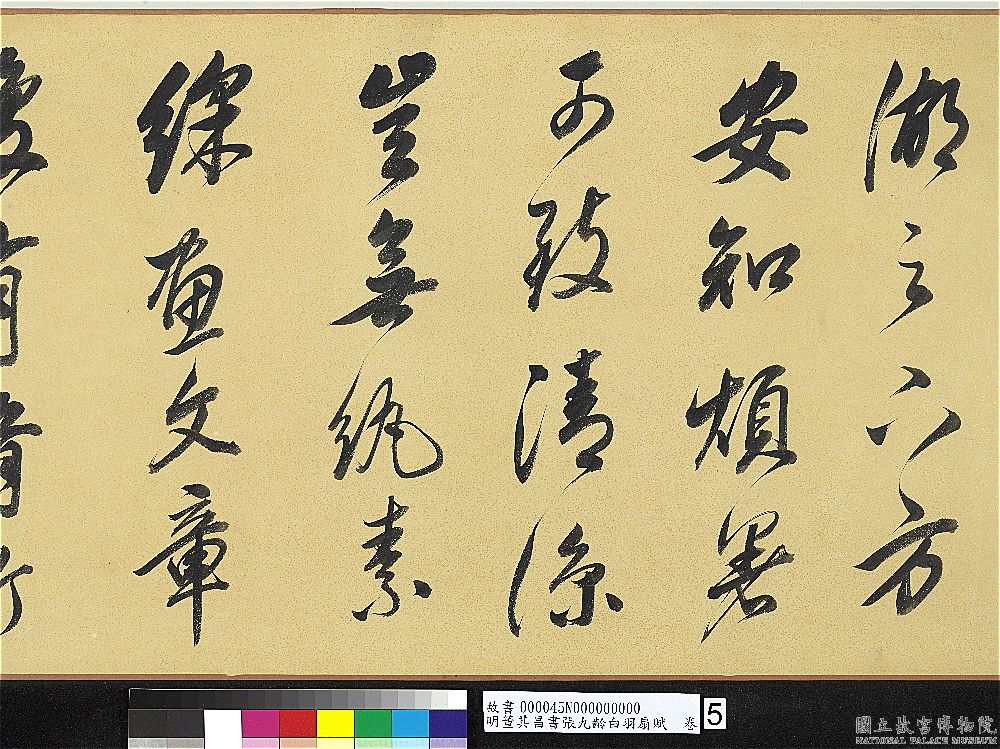 湖之下方
安知煩暑
可致清涼
豈無紈素
綵畫文章
故書 000045N000000000
明董其昌書張九齡白羽扇賦 卷
5
國立故宮博物院
NATIONAL PALACE MUSEUM